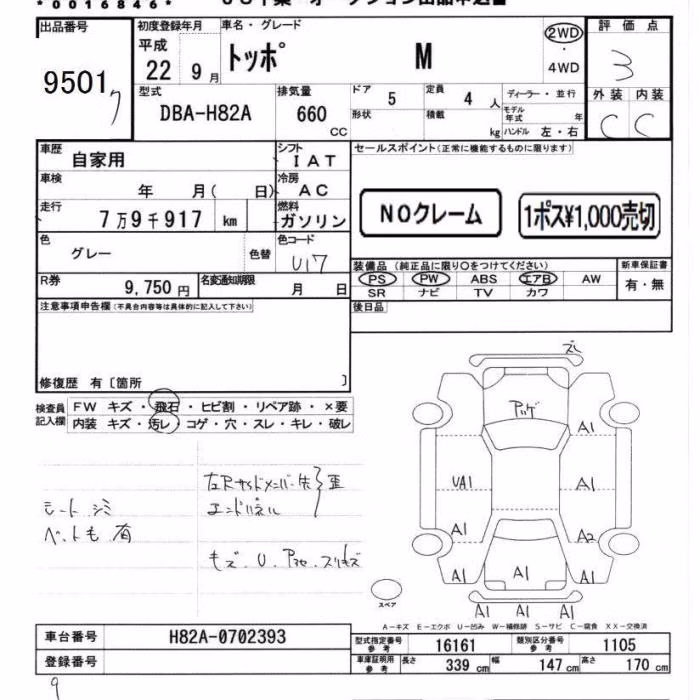 *0016846*
出品番号
9501
7
初度登録年月
平成
22年 9月
車名・グレード
トッポ M
2WD
・
4WD
評価点
3
外装 内装
C C
型式
DBA-H82A
排気量
660
CC
ドア 5
定員 4人
形状
積載 kg
ディーラー・並行
モデル年式 年
ハンドル 左・右
車歴
自家用
シフト
IAT
車検
年 月( 日)
冷房
AC
走行
7万9千917 km
燃料
ガソリン
色
グレー
色替
色コード
U17
R券
9,750円
名変通知期限
月 日
セールスポイント(正常に機能するものに限ります)
NOクレーム
1ポス¥1,000売切
装備品(純正品に限り○をつけてください)
PS PW ABS エアB AW
SR ナビ TV カワ
新車保証書
有・無
後日品
注意事項申告欄(不具合内容等は具体的に記入して下さい)
修復歴 有〔箇所 〕
検査員
記入欄
FW キズ・飛石・ヒビ割・リペア跡・×要
内装 キズ・汚レ・コゲ・穴・スレ・キレ・破レ
シートシミ
ペットも有
左Rサイドメンバー先
エンドパネル
歪
キズ、U、アセ、スリキズ
ズレ
A1
UA1
A1
A1
A2
A1
A1
A1
A1 A1 A1
スペア
A-キズ E-エクボ U-凹み W-補修跡 S-サビ C-腐食 XX-交換済
車台番号
H82A-0702393
登録番号
型式指定番号
参考
16161
類別区分番号
参考
1105
車庫証明用
参考
長さ 339cm
幅 147cm
高さ 170cm
9